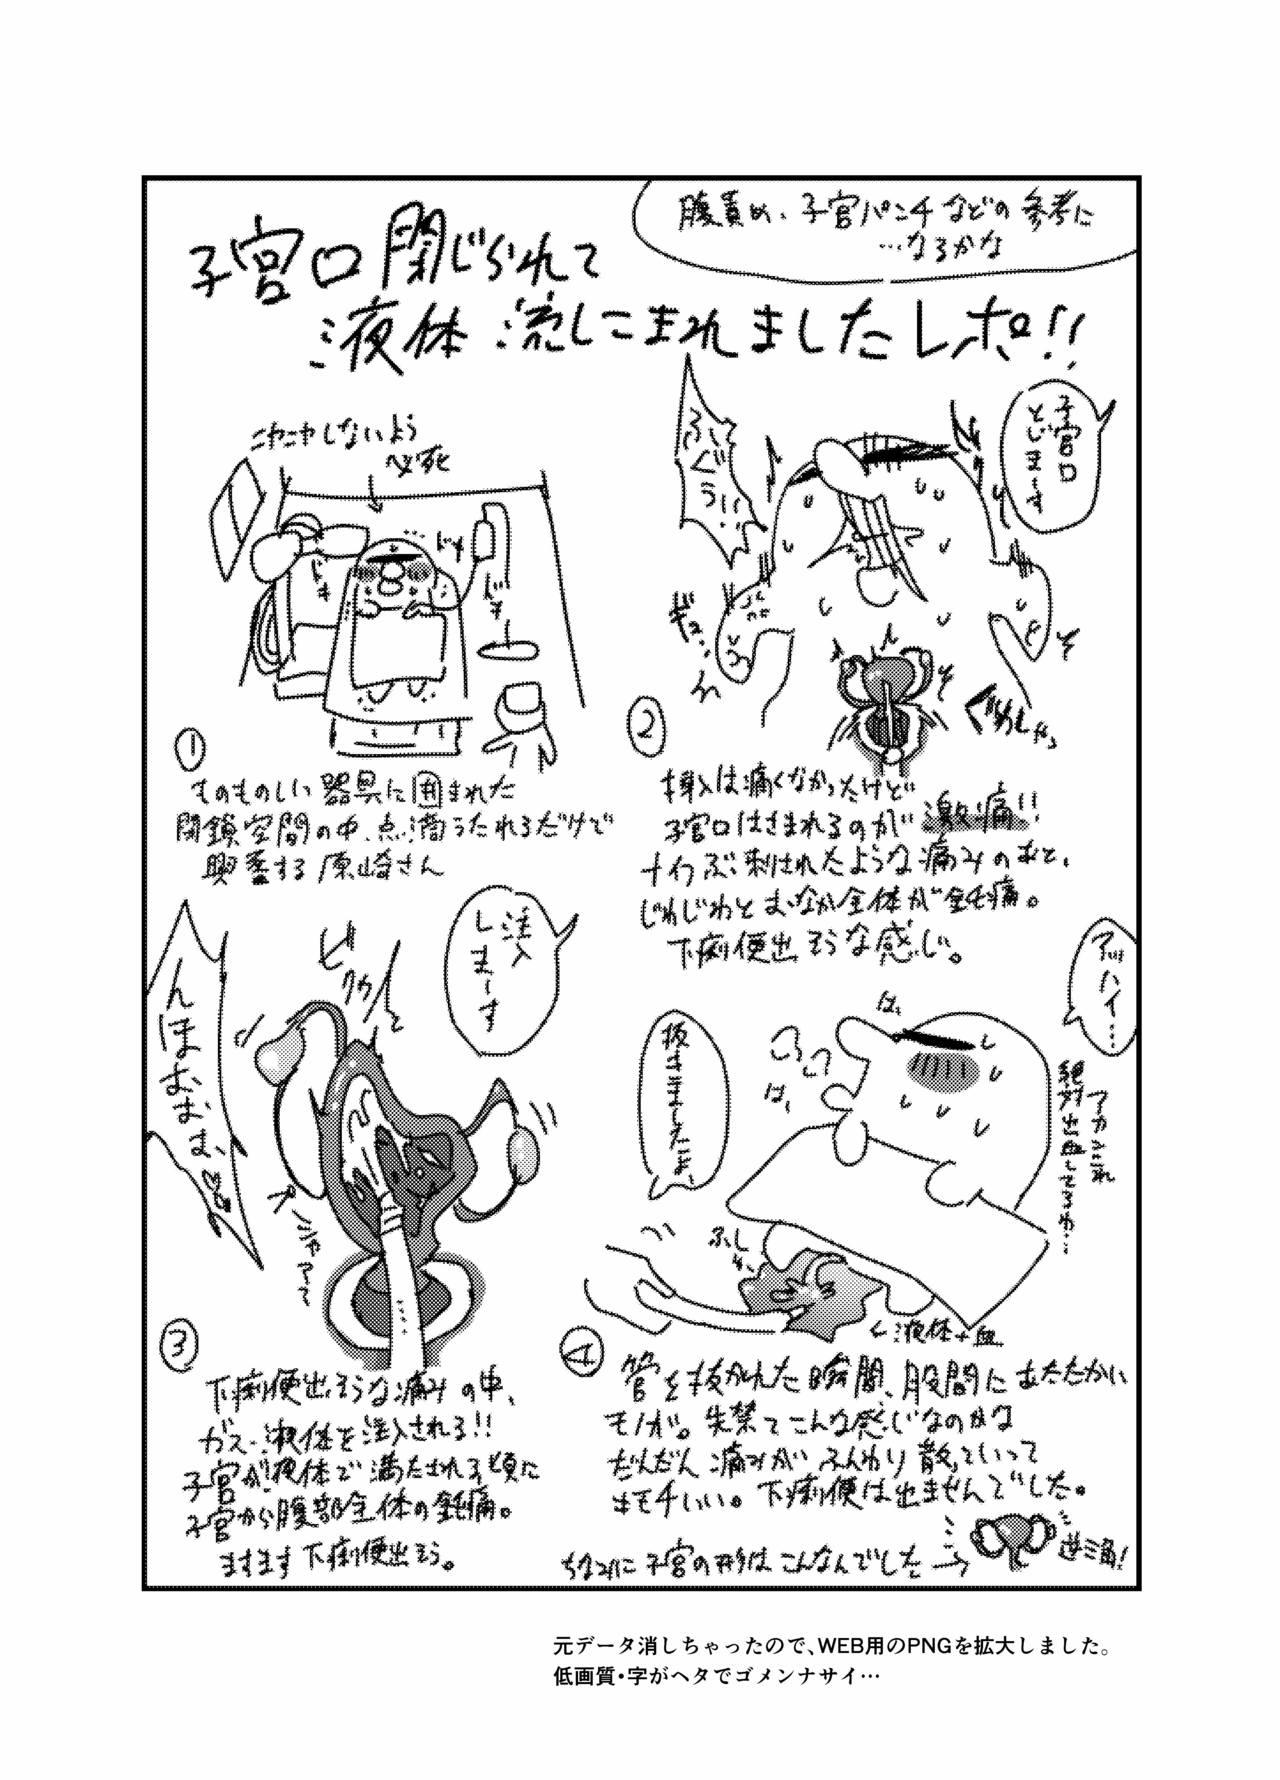 腹責め、子宮パンチなどの参考に
…なるかな
子宮口閉じられて
液体流しこまれましたレポ!!
ニヤニヤしないよう
必死
ドキ
ドキ
ドキ
①
ものものしい器具に囲まれた
閉鎖空間の中、点滴うたれるだけで
興奮する原崎さん
子宮口
とじまーす
ふぐぅ!!
ギュ…
②
挿入は痛くなかったけど
子宮口はさまれるのが激痛!!
ナイフぶっ刺されたような痛みのあと、
じわじわとおなか全体が鈍痛。
下痢便出そうな感じ。
注入
しまーす
ビクカ
んほおおおお
③
下痢便出そうな痛みの中、
ガス・液体を注入される!!
子宮が液体で満たされる頃に
子宮から腹部全体の鈍痛。
ますます下痢便出そう。
アッハイ…
アカンこれ
絶対出血してるわ…
はっ
はっ
抜きましたよ
←液体+血
④
管を抜かれた瞬間、股間にあたたかい
モノが。失禁てこんな感じなのかな
だんだん痛みがふんわり散っていって
キモチいい。下痢便は出ませんでした。
ちなみに子宮の形はこんなんでした→
逆三角!
元データ消しちゃったので、WEB用のPNGを拡大しました。
低画質・字がヘタでゴメンナサイ…